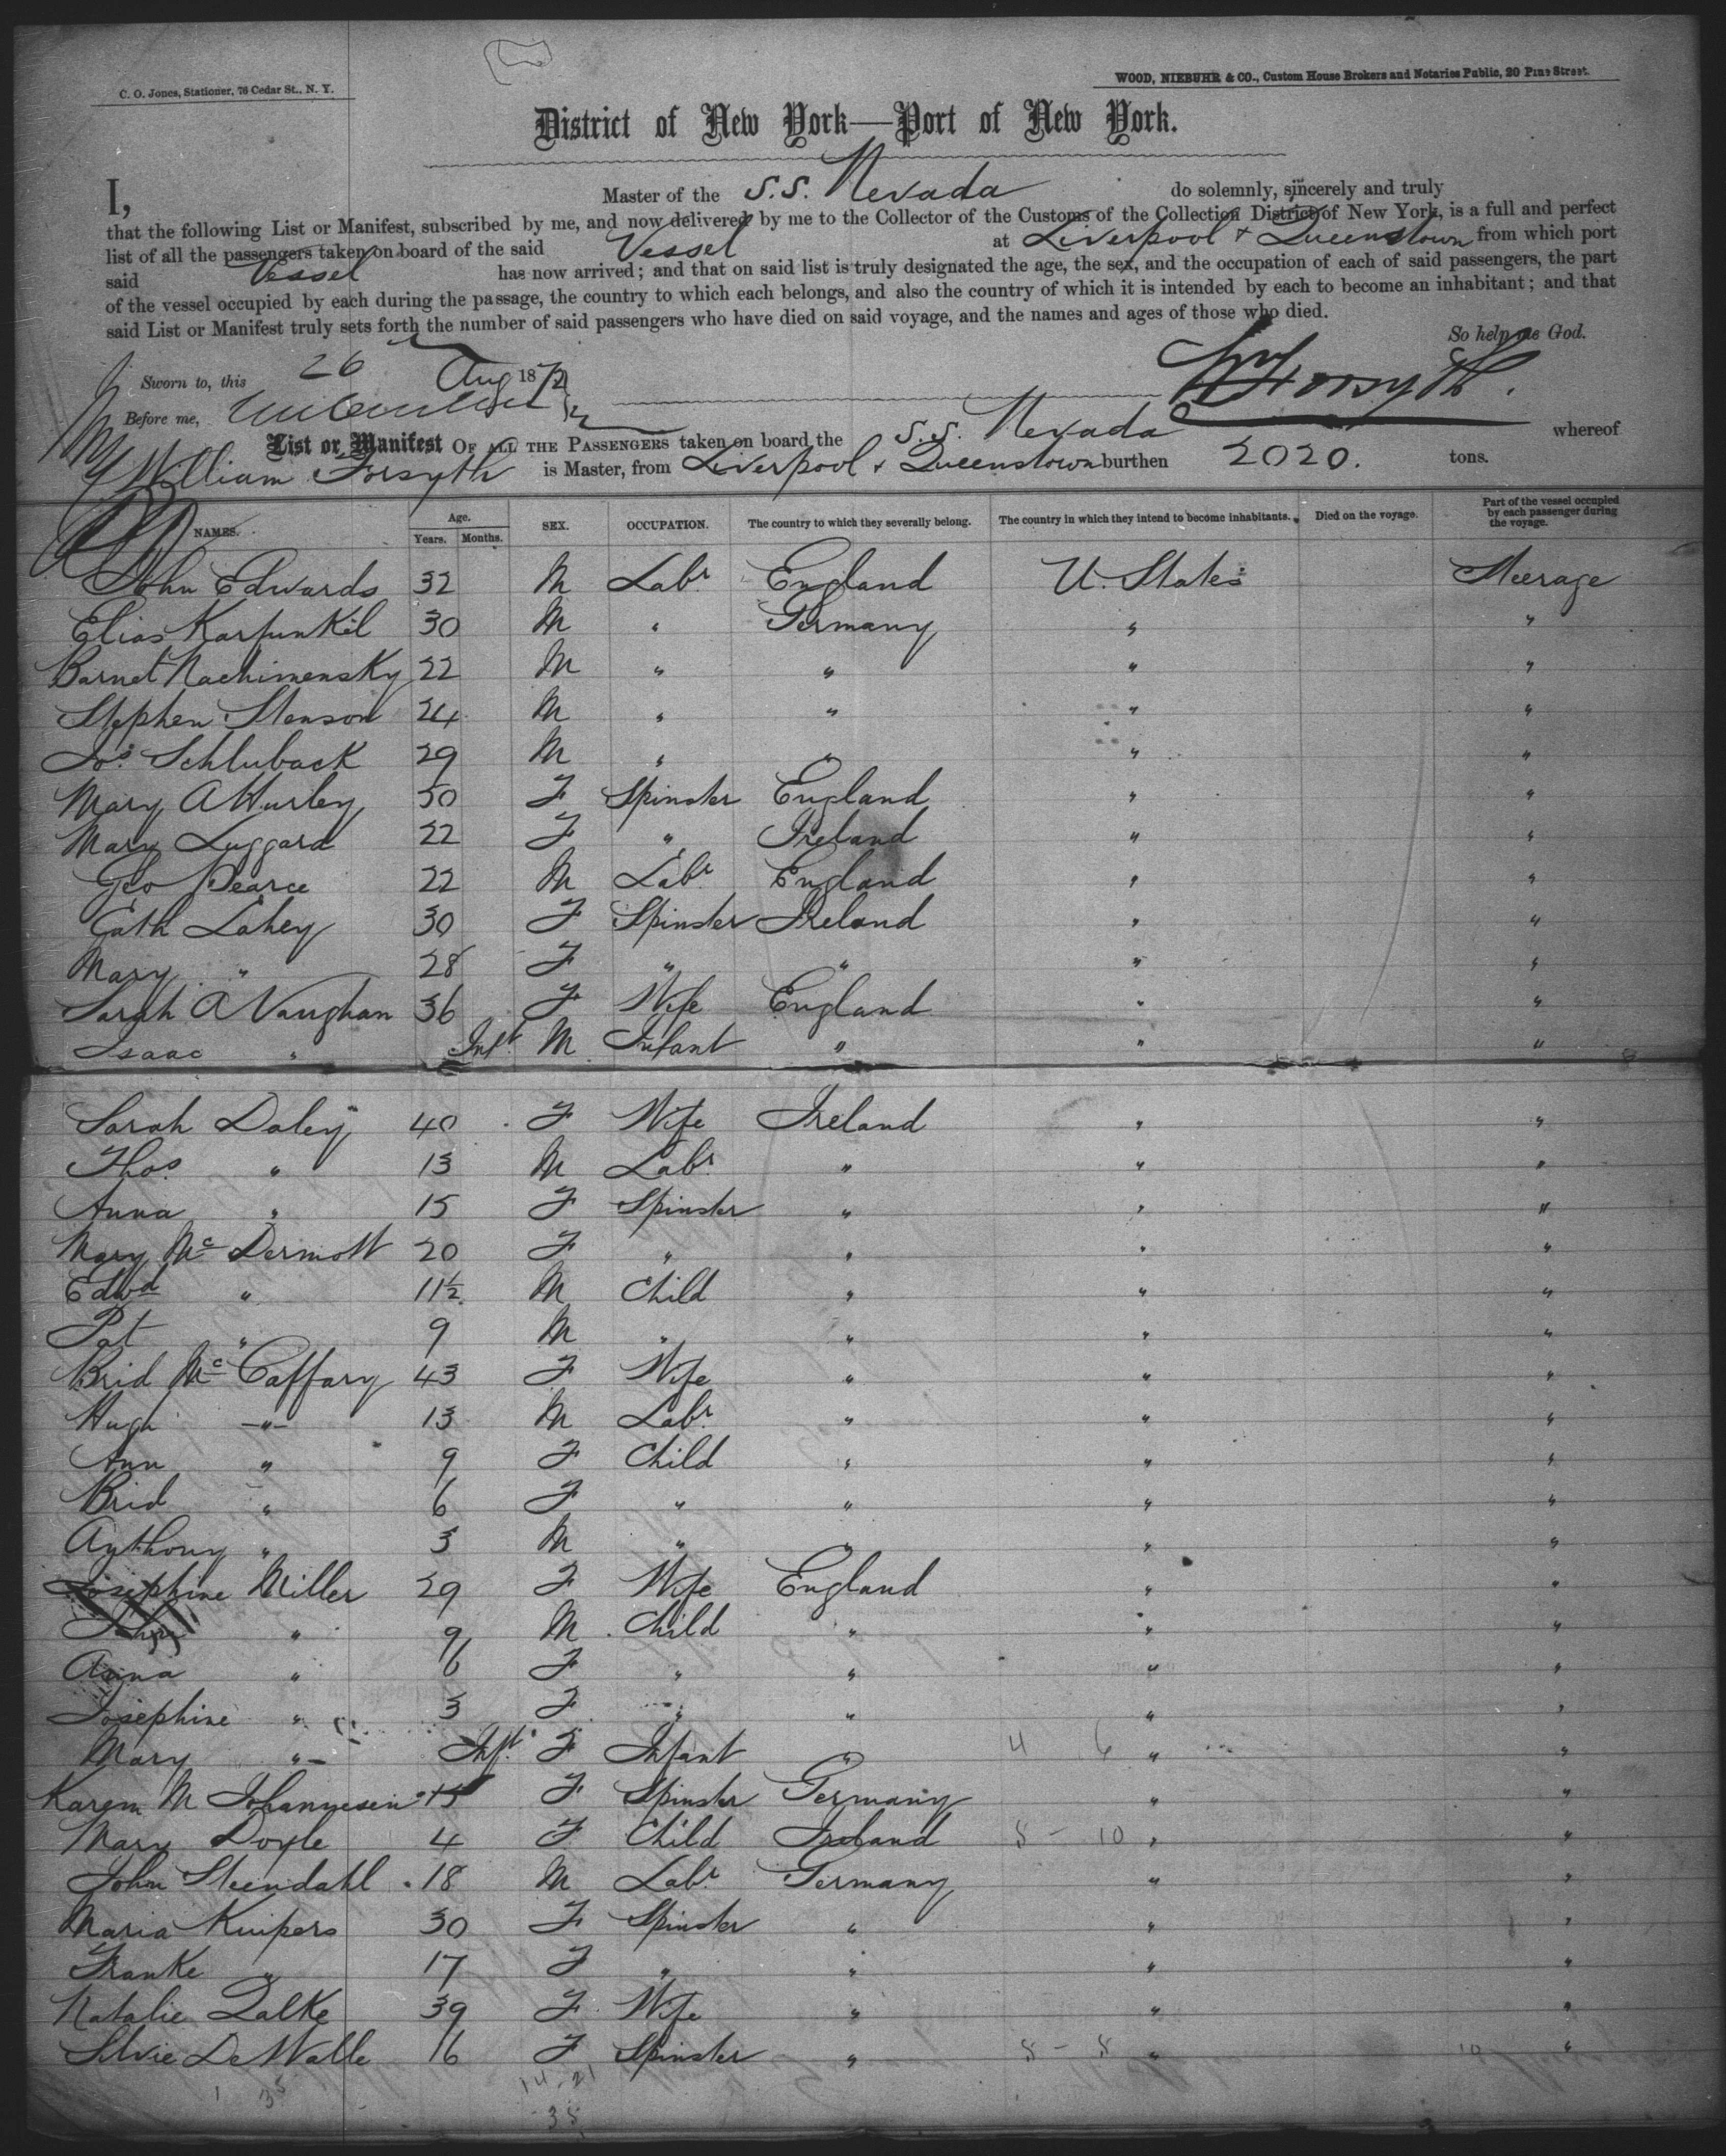 C. O. Jones, Stationer, 76 Cedar St., N. Y.
WOOD, NIEBUHR & CO., Custom House Brokers and Notaries Public, 20 Pine Street.
District of New York—Port of New York.
I, Master of the S.S. Nevada do solemnly, sincerely and truly
that the following List or Manifest, subscribed by me, and now delivered by me to the Collector of the Customs of the Collection District of New York, is a full and perfect
list of all the passengers taken on board of the said Vessel at Liverpool & Queenstown from which port
said Vessel has now arrived; and that on said list is truly designated the age, the sex, and the occupation of each of said passengers, the part
of the vessel occupied by each during the passage, the country to which each belongs, and also the country of which it is intended by each to become an inhabitant; and that
said List or Manifest truly sets forth the number of said passengers who have died on said voyage, and the names and ages of those who died.
So help me God.
Sworn to, this 26 Aug 1872
Wm Forsyth.
Before me,
List or Manifest OF ALL THE PASSENGERS taken on board the S.S. Nevada whereof
William Forsyth is Master, from Liverpool & Queenstown burthen 2020. tons.
NAMES. Age. Years. Months. SEX. OCCUPATION. The country to which they severally belong. The country in which they intend to become inhabitants. Died on the voyage. Part of the vessel occupied by each passenger during the voyage.
John Edwards 32 M Labr. England U. States Steerage
Elias Karfunkel 30 M " Germany " "
Barnet Nachimensky 22 M " " " "
Stephen Stenson 24 M " " " "
Jos. Schluback 29 M " " " "
Mary A Hurley 50 F Spinster England " "
Mary Luggard 22 F " Ireland " "
Geo Pearce 22 M Labr. England " "
Cath Lahey 30 F Spinster Ireland " "
Mary " 28 F " " " "
Sarah A Vaughan 36 F Wife England " "
Isaac " Inft. M Infant " " "
Sarah Daley 40 F Wife Ireland " "
Thos. " 13 M Labr. " " "
Anna " 15 F Spinster " " "
Mary McDermott 20 F " " " "
Edwd " 11½ M Child " " "
Pat " 9 M " " " "
Brid McCaffary 43 F Wife " " "
Hugh " 13 M Labr. " " "
Ann " 9 F Child " " "
Brid " 6 F " " " "
Anthony " 3 M " " " "
Josephine Miller 29 F Wife England " "
John " 9 M Child " " "
Anna " 6 F " " " "
Josephine " 3 F " " " "
Mary " Inft. F Infant " 4 6 " "
Karen M Johannesen 15 F Spinster Germany " "
Mary Doyle 4 F Child Ireland 8 - 10 " "
John Steendahl 18 M Labr. Germany " "
Maria Kuipers 30 F Spinster " " "
Franke " 17 F " " " "
Natalie Zalke 39 F Wife " " "
Silvie DeWalle 16 F Spinster " 8 - 8 " 10 "
1 3 14. 21
35